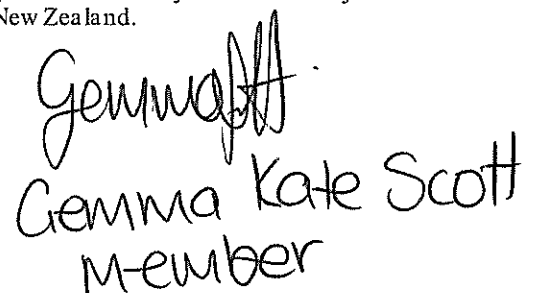 New Zealand.
Gemma
Gemma Kate Scott
Member